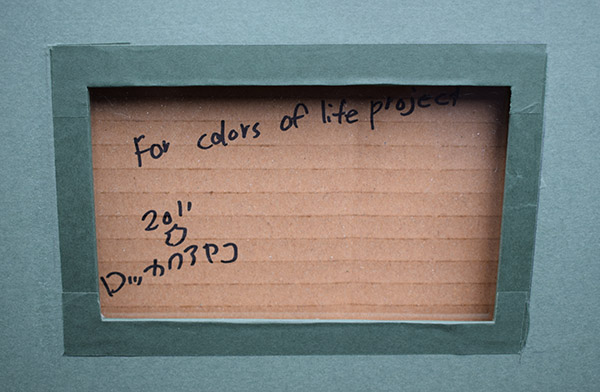 For colors of life project
2011